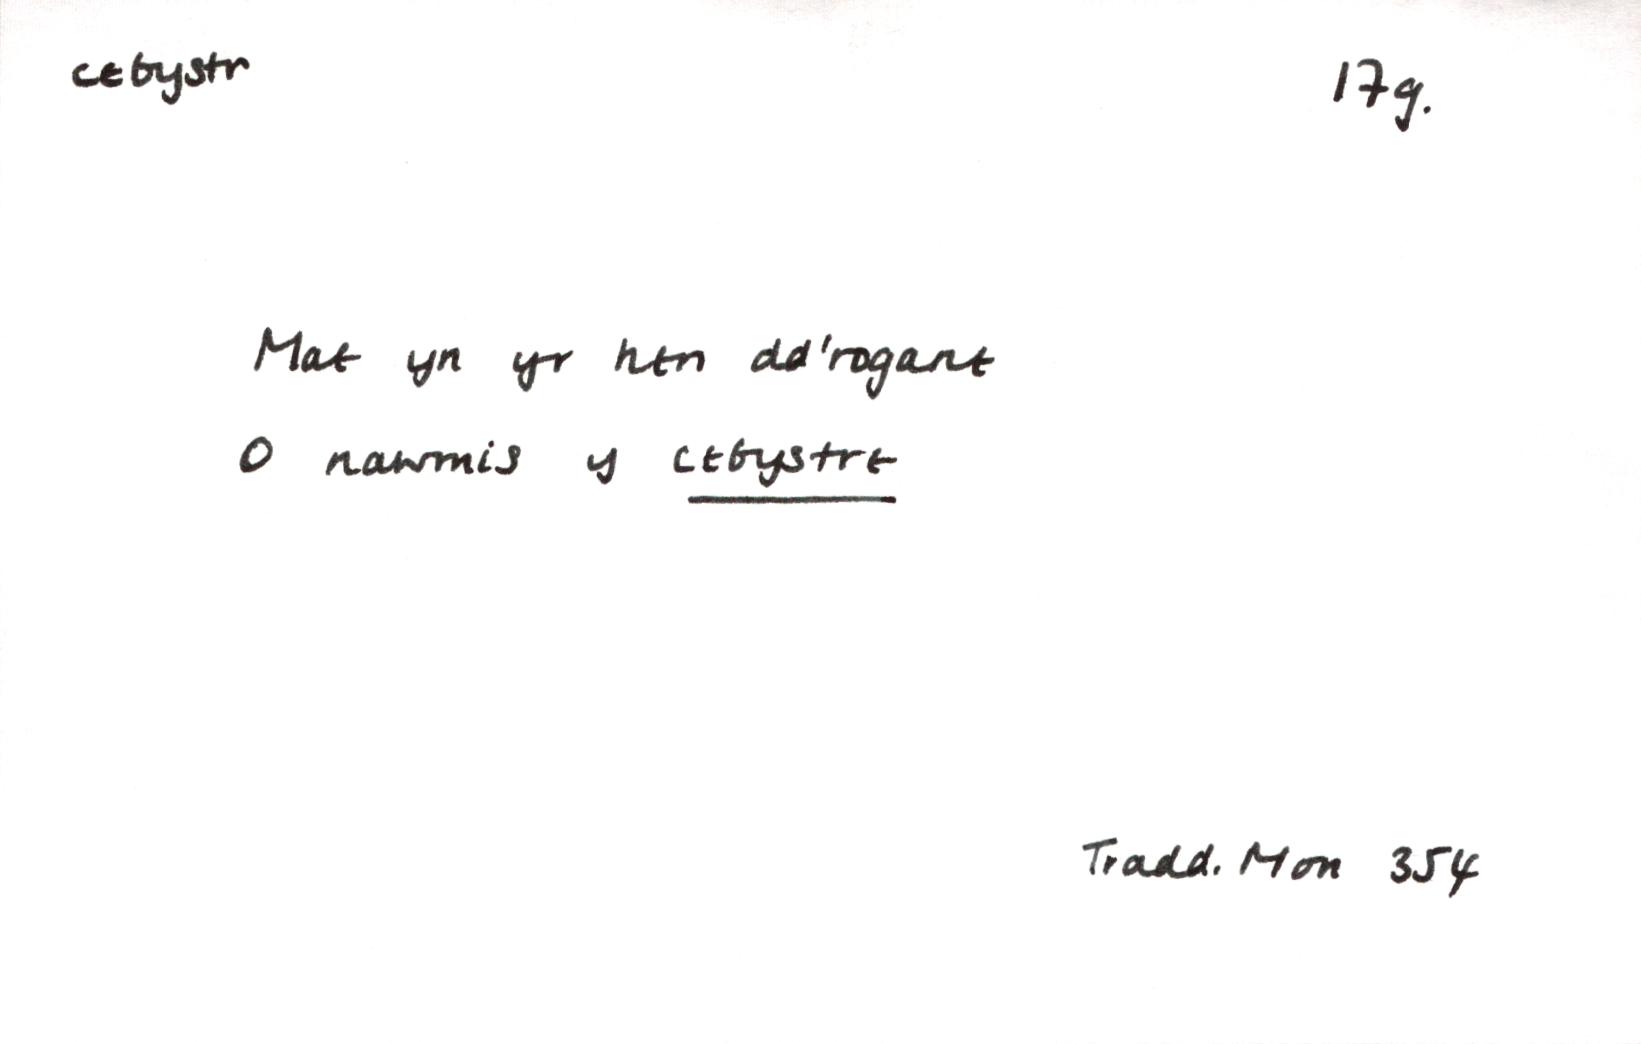 cebystr 17g.
Mae yn yr hen dd'rogane
O nawmis y cebystre
Tradd. Mon 354